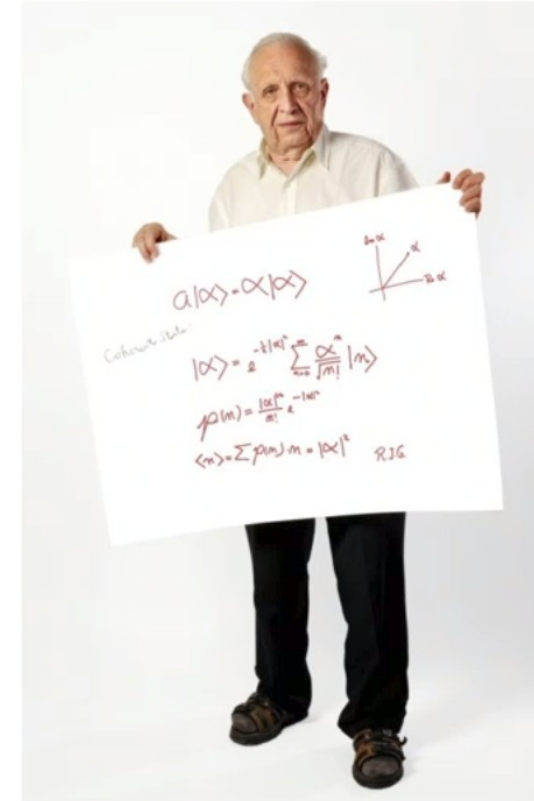 a|α⟩=α|α⟩
Im α
α
Re α
Coherent State
|α⟩ = e^{-½|α|²} ∑_{n=0}^{∞} αⁿ/√n! |n⟩
p(n) = |α|²ⁿ/n! e^{-|α|²}
⟨n⟩=∑p(n)·n=|α|²
RJG